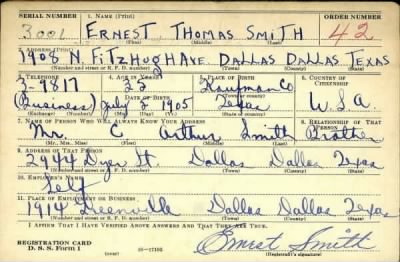 SERIAL NUMBER 1. NAME (Print) ORDER NUMBER
3001 ERNEST THOMAS SMITH 42
(First) (Middle) (Last)
2. ADDRESS (Print)
1908 N. FITZHUGH AVE. DALLAS DALLAS TEXAS
(Number and street or R. F. D. number) (Town) (County) (State)
3. TELEPHONE 4. AGE IN YEARS 5. PLACE OF BIRTH 6. COUNTRY OF CITIZENSHIP
3-9817 Kaufman Co
DATE OF BIRTH
(Business) July 1905 Texas U.S.A.
7. NAME OF PERSON WHO WILL ALWAYS KNOW YOUR ADDRESS 8. RELATIONSHIP OF THAT PERSON
Mr. C Arthur Smith Brother
(Mr., Mrs., Miss) (First) (Middle) (Last)
9. ADDRESS OF THAT PERSON
2944 Dyer St. Dallas Dallas Texas
(Number and street or R. F. D. number) (Town) (County) (State)
10. EMPLOYER'S NAME
Self
11. PLACE OF EMPLOYMENT OR BUSINESS
1914 Greenville Dallas Dallas Texas
(Number and street or R. F. D. number) (Town) (County) (State)
I AFFIRM THAT I HAVE VERIFIED ABOVE ANSWERS AND THAT THEY ARE TRUE.
REGISTRATION CARD
D. S. S. Form 1 16-17105 Ernest Smith
(Registrant's signature)